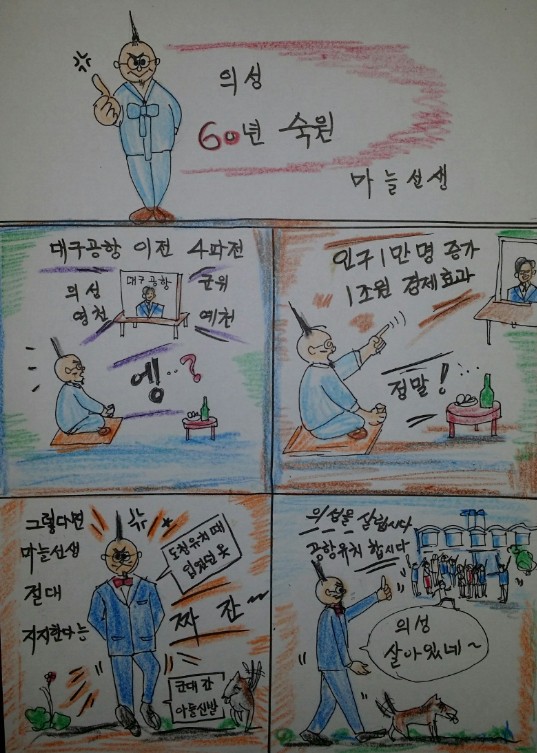 의성
60년 숙원
마늘선생
대구공항 이전 4파전
의성
영천
대구공항
군위
예천
엥..?
인구 1만명 증가
1조원 경제효과
정말!
그렇다면
마늘선생
절대
지지한다는
도청유치때
입었던 옷
짜 잔~
군대간
아들신발
의성을 살립시다
공항유치 합시다
의성
살아있네~